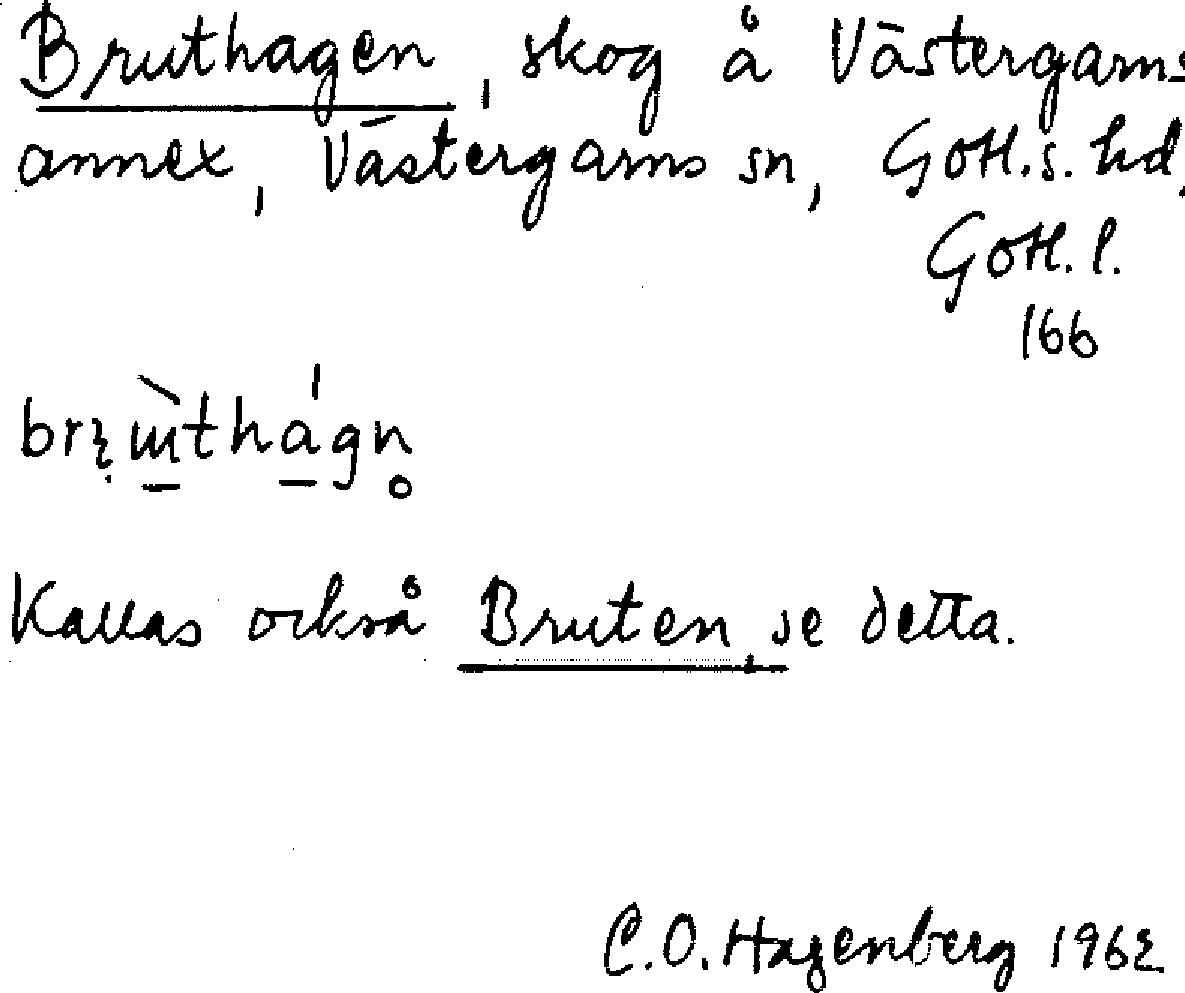 Bruthagen, skog å Västergarns
annex, Västergarns sn, Gotl.s. hd,
Gotl. l.
166
Kallas också Bruten, se detta.
C.O. Hagenberg 1962